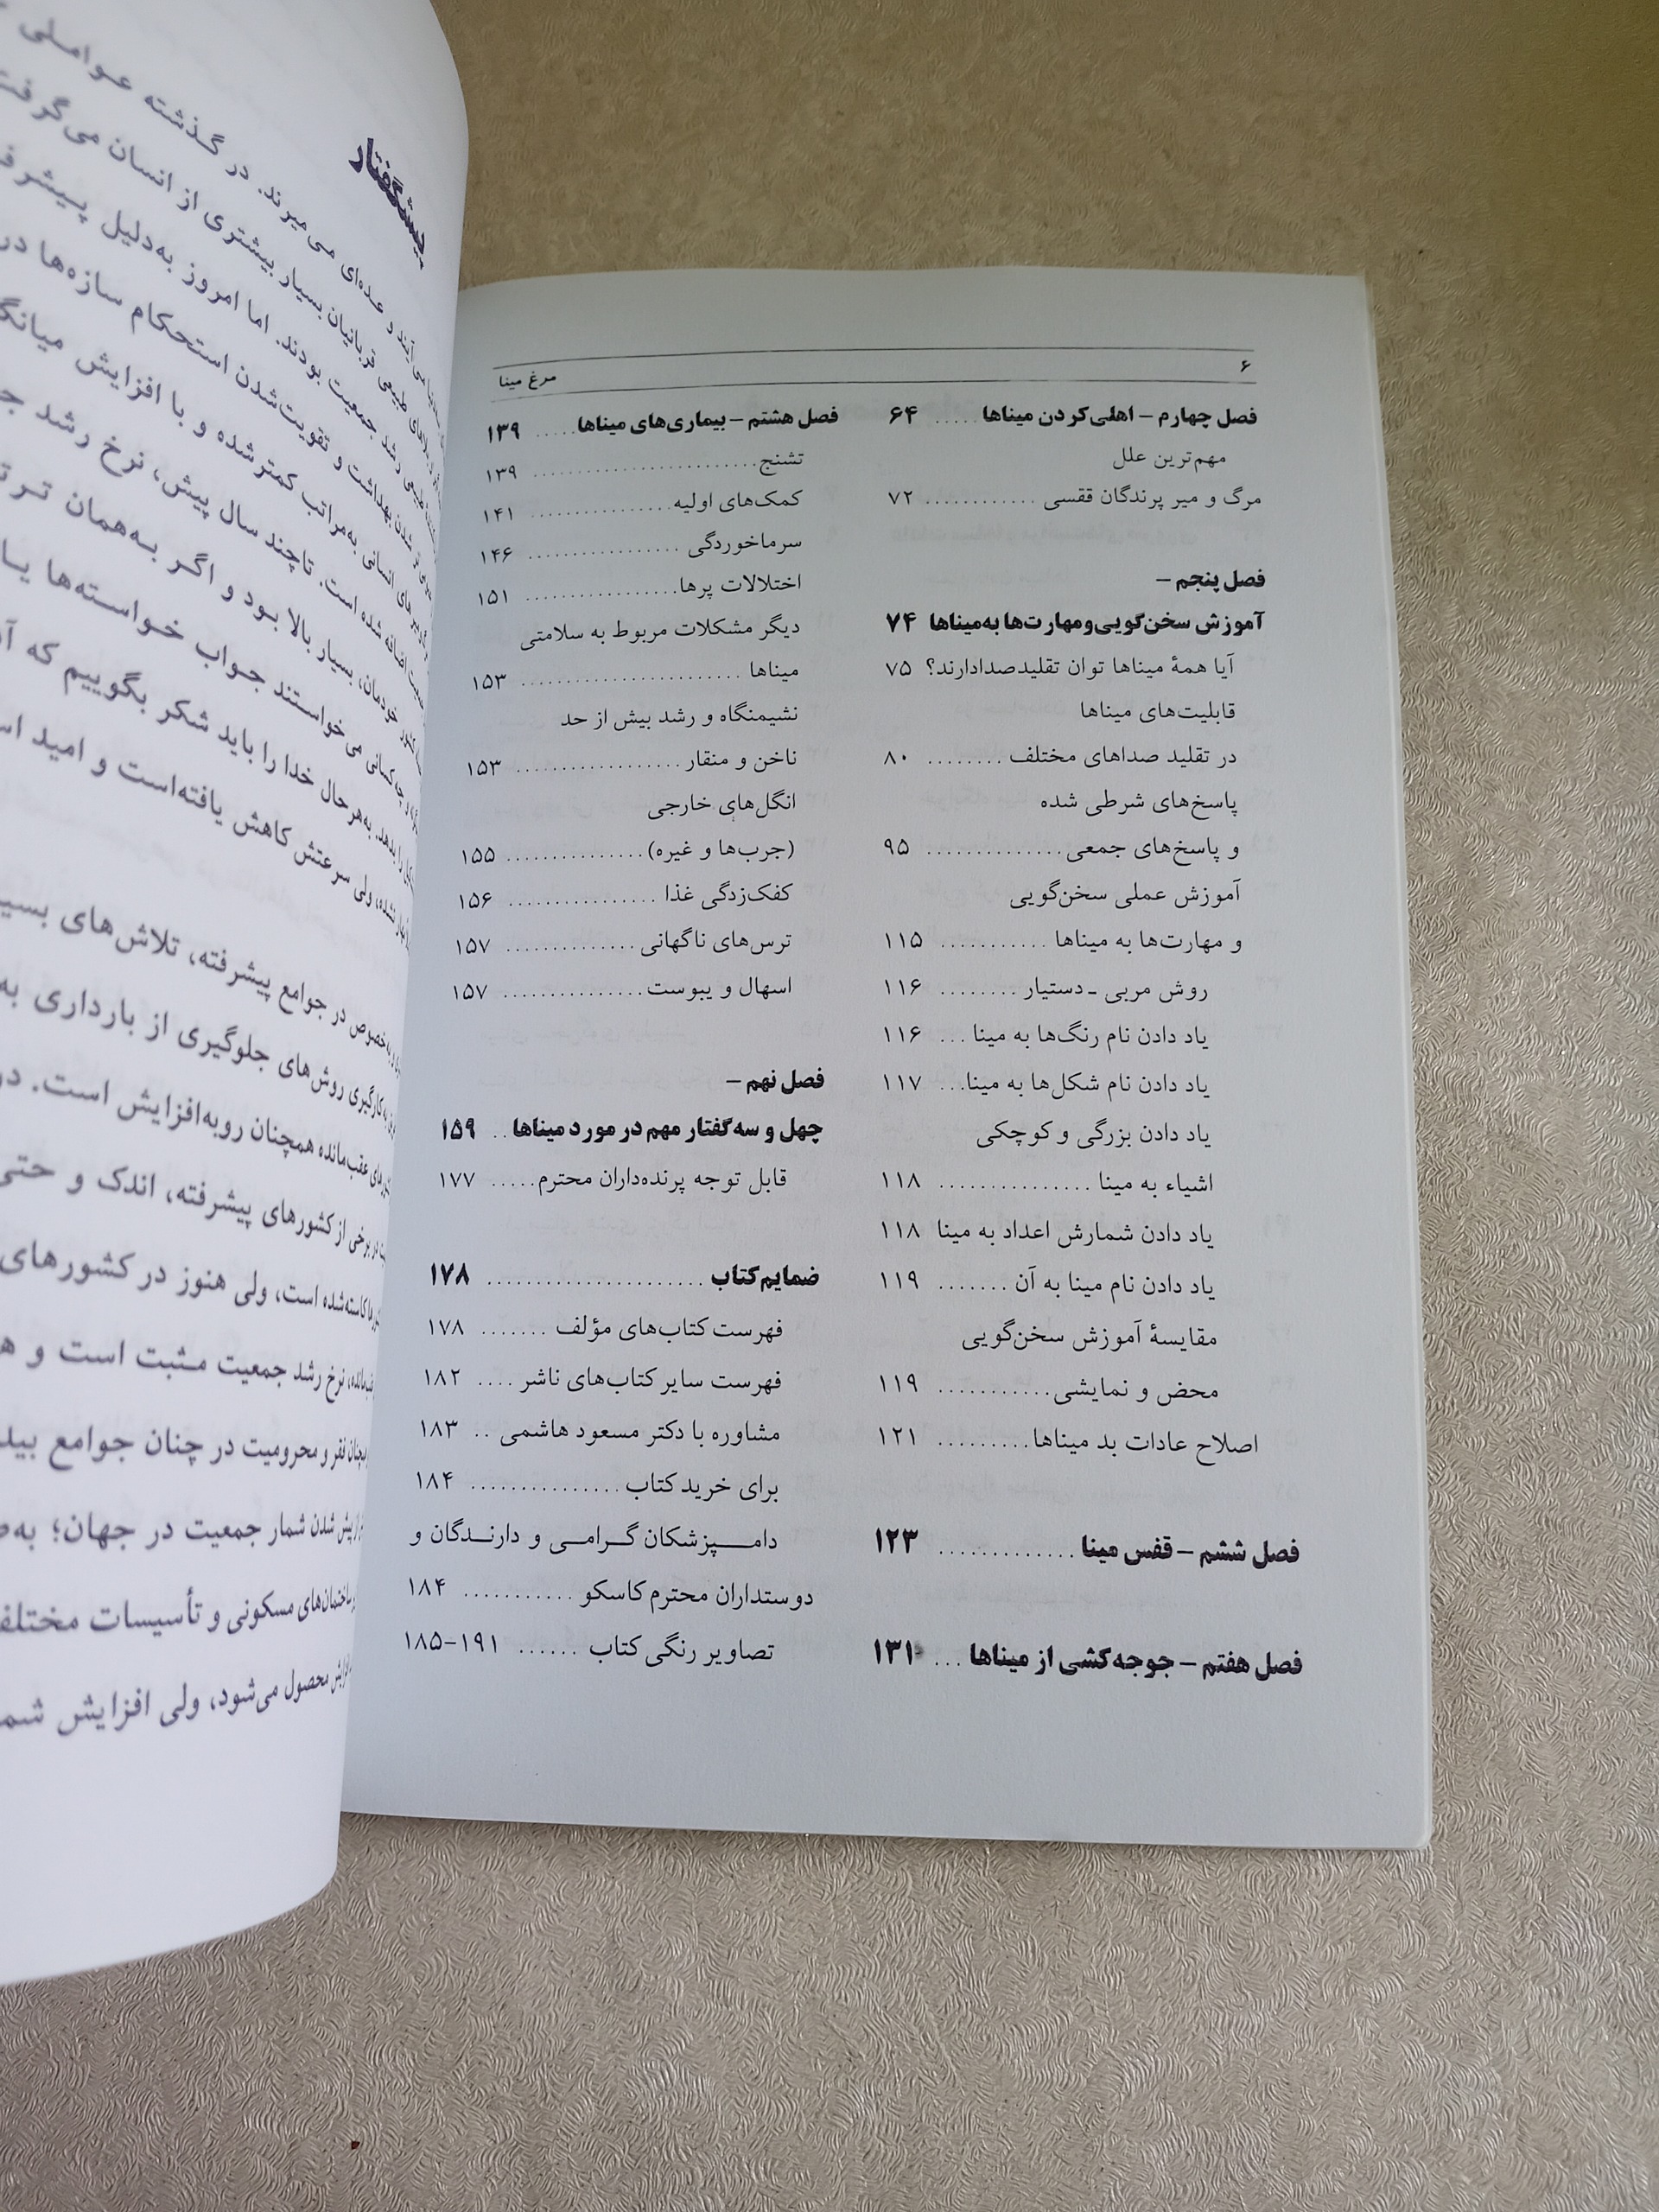 ۶
مرغ مینا
فصل چهارم – اهلی‌کردن میناها ..... ۶۴
مهم‌ترین علل
مرگ و میر پرندگان قفسی ............ ۷۲
فصل پنجم –
آموزش سخن‌گویی‌ومهارت‌ها به‌میناها ۷۴
آیا همهٔ میناها توان تقلیدصدادارند؟ ۷۵
قابلیت‌های میناها
در تقلید صداهای مختلف ......... ۸۰
پاسخ‌های شرطی شده
و پاسخ‌های جمعی ............... ۹۵
آموزش عملی سخن‌گویی
و مهارت‌ها به میناها ........... ۱۱۵
روش مربی ـ دستیار ......... ۱۱۶
یاد دادن نام رنگ‌ها به مینا ... ۱۱۶
یاد دادن نام شکل‌ها به مینا... ۱۱۷
یاد دادن بزرگی و کوچکی
اشیاء به مینا ................ ۱۱۸
یاد دادن شمارش اعداد به مینا ۱۱۸
یاد دادن نام مینا به آن ....... ۱۱۹
مقایسهٔ آموزش سخن‌گویی
محض و نمایشی ............ ۱۱۹
اصلاح عادات بد میناها .......... ۱۲۱
فصل ششم – قفس مینا ............. ۱۲۳
فصل هفتم – جوجه‌کشی از میناها ... ۱۳۱
فصل هشتم – بیماری‌های میناها ..... ۱۳۹
تشنج ......................... ۱۳۹
کمک‌های اولیه ............... ۱۴۱
سرماخوردگی ................. ۱۴۶
اختلالات پرها ................. ۱۵۱
دیگر مشکلات مربوط به سلامتی
میناها ........................ ۱۵۳
نشیمنگاه و رشد بیش از حد
ناخن و منقار .................. ۱۵۳
انگل‌های خارجی
(جرب‌ها و غیره) ............... ۱۵۵
کفک‌زدگی غذا ................ ۱۵۶
ترس‌های ناگهانی .............. ۱۵۷
اسهال و یبوست ............... ۱۵۷
فصل نهم –
چهل و سه‌گفتار مهم در مورد میناها .. ۱۵۹
قابل توجه پرنده‌داران محترم ..... ۱۷۷
ضمایم‌کتاب ....................... ۱۷۸
فهرست کتاب‌های مؤلف ....... ۱۷۸
فهرست سایر کتاب‌های ناشر .... ۱۸۲
مشاوره با دکتر مسعود هاشمی .. ۱۸۳
برای خرید کتاب ................ ۱۸۴
دامـــپزشکان گـــرامـــی و دارنـــدگان و
دوستداران محترم کاسکو ........... ۱۸۴
تصاویر رنگی کتاب ...... ۱۸۵–۱۹۱
پیشگفتار
می‌میرند. در گـذشته عـوامـلی
قربانیان بسیار بیشتری از انسان می‌گرفت
رشد جمعیت بودند. اما امروز به‌دلیل
بهداشت و تقویت‌شدن استحکام سازه‌ها در
انسانی به‌مراتب کمتر شده و با افزایش
اضافه شده است. تا چند سال پیش، نرخ رشد
خودمان، بسیار بالا بـود و اگـر بـه‌همان
می‌خواسـتند جـواب خـواسـته‌ها
به‌هر حال خدا را باید شکر بگوییم که
ولی سرعتش کاهش یافته‌است و امید
به‌خصوص در جوامع پیشرفته، تلاش‌های
به‌کارگیری روش‌های جلوگیری از بارداری به
عقب‌مانده همچنان روبه‌افزایش است. در
در برخی از کشورهای پیشرفته، اندک و حتی
کاسته‌شده است، ولی هنوز در کشورهای
نرخ رشد جمعیت مـثبت است و
فقر و محرومیت در چنان جوامع
از پیش شدن شمار جمعیت در جهان؛
ساختمان‌های مسکونی و تأسیسات
محصول می‌شود، ولی افزایش